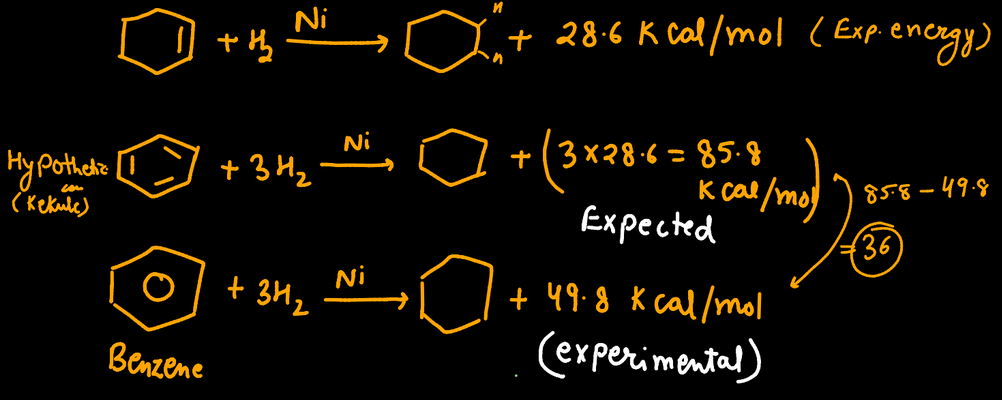 + H₂ Ni + 28.6 Kcal/mol (Exp. energy)
n
n
Hypothetic
(Kekule)
+ 3H₂ Ni + (3×28.6 = 85.8
Kcal/mol)
Expected
85.8 – 49.8
= 36
+ 3H₂ Ni + 49.8 Kcal/mol
(experimental)
Benzene